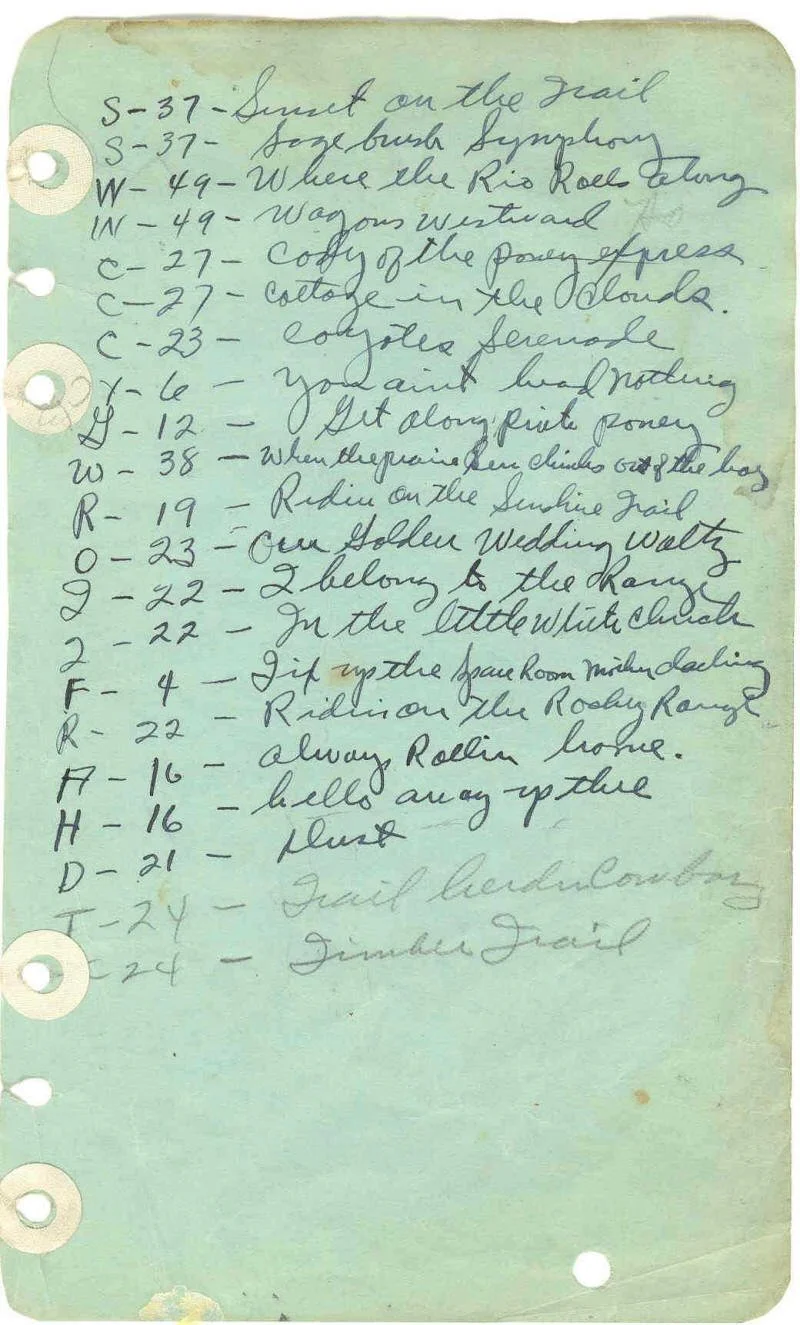 S-37-Sunset on the Trail
S-37- Sage brush Symphony
W-49-Where the Rio Rolls along
W-49- Wagons westward
C-27- Cody of the poney express
C-27- cottage in the clouds.
C-23- Coyotes Serenade
Y-6- You aint heard nothing
G-12- Get along pinto poney
W-38-When the prairie Sun climbs out of the hay
R-19- Ridin on the Sunshine Trail
O-23-Our Golden Wedding Waltz
I-22-I belong to the Range
I-22- In the little White church
F-4-Fix up the Spare Room Mother darling
R-22- Ridin on the Rocky Range
A-16- always Rollin home.
H-16-hello away up thre
D-21- Dust
T-24- Trail herdin Cowboy
24- Timber Trail